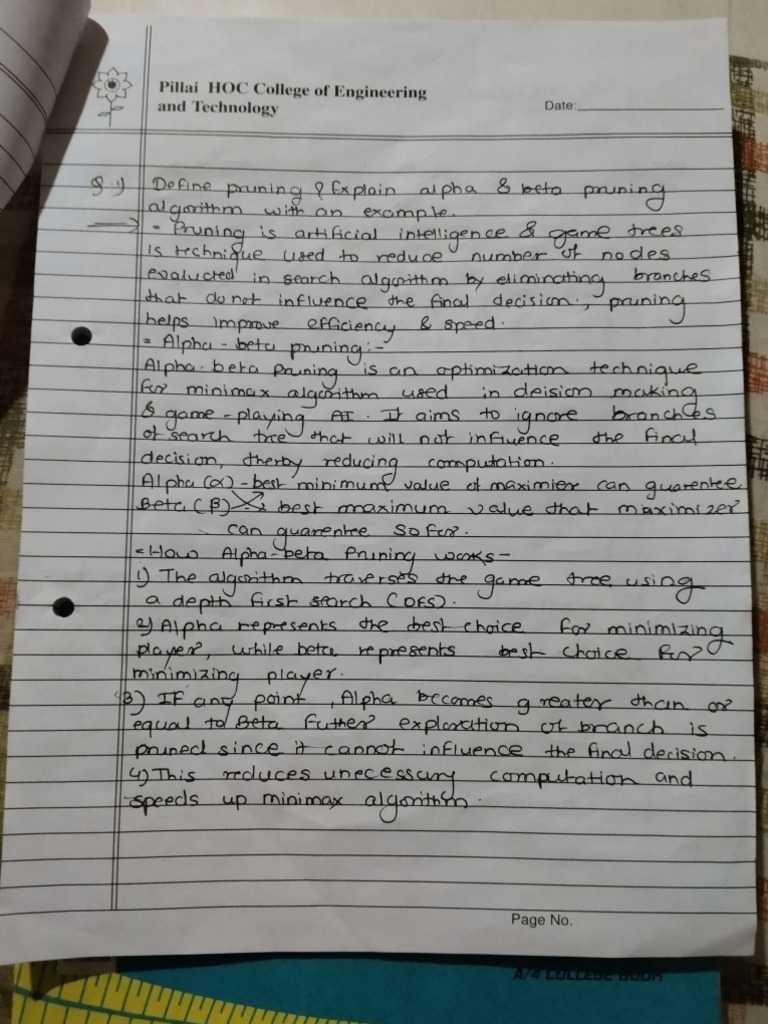 Pillai HOC College of Engineering
and Technology
Date:
Q.1) Define pruning ? Explain alpha & beta pruning
algorithm with an example.
- Pruning is artificial intelligence & game trees
is technique used to reduce number of nodes
evaluated in search algorithm by eliminating branches
that do not influence the final decision., pruning
helps improve efficiency & speed.
= Alpha-beta pruning:-
Alpha-beta pruning is an optimization technique
for minimax algorithm used in deision making
& game-playing AI. It aims to ignore branches
of search tree that will not influence the final
decision, therby reducing computation.
Alpha (α) - best minimum value of maximier can guarentee
Beta (β) best maximum value that maximizer
can guarentee so far.
= How Alpha-beta Pruning works-
1) The algorithm traverses the game tree using
a depth first search (DFS).
2) Alpha represents the best choice for minimizing
player, while beta represents best choice for
minimizing player.
3) IF any point, Alpha becomes greater than or
equal to Beta futher exploration of branch is
pruned since it cannot influence the final decision.
4) This reduces unecessary computation and
speeds up minimax algorithm.
Page No.
A/4 COLLEGE BOOK